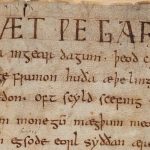 ÆT ǷE GAR
in gear dagum, þeod
ge frunon huða æþelin
don. oft scyld scefing
monegū mægþum
egsode eorl syððan